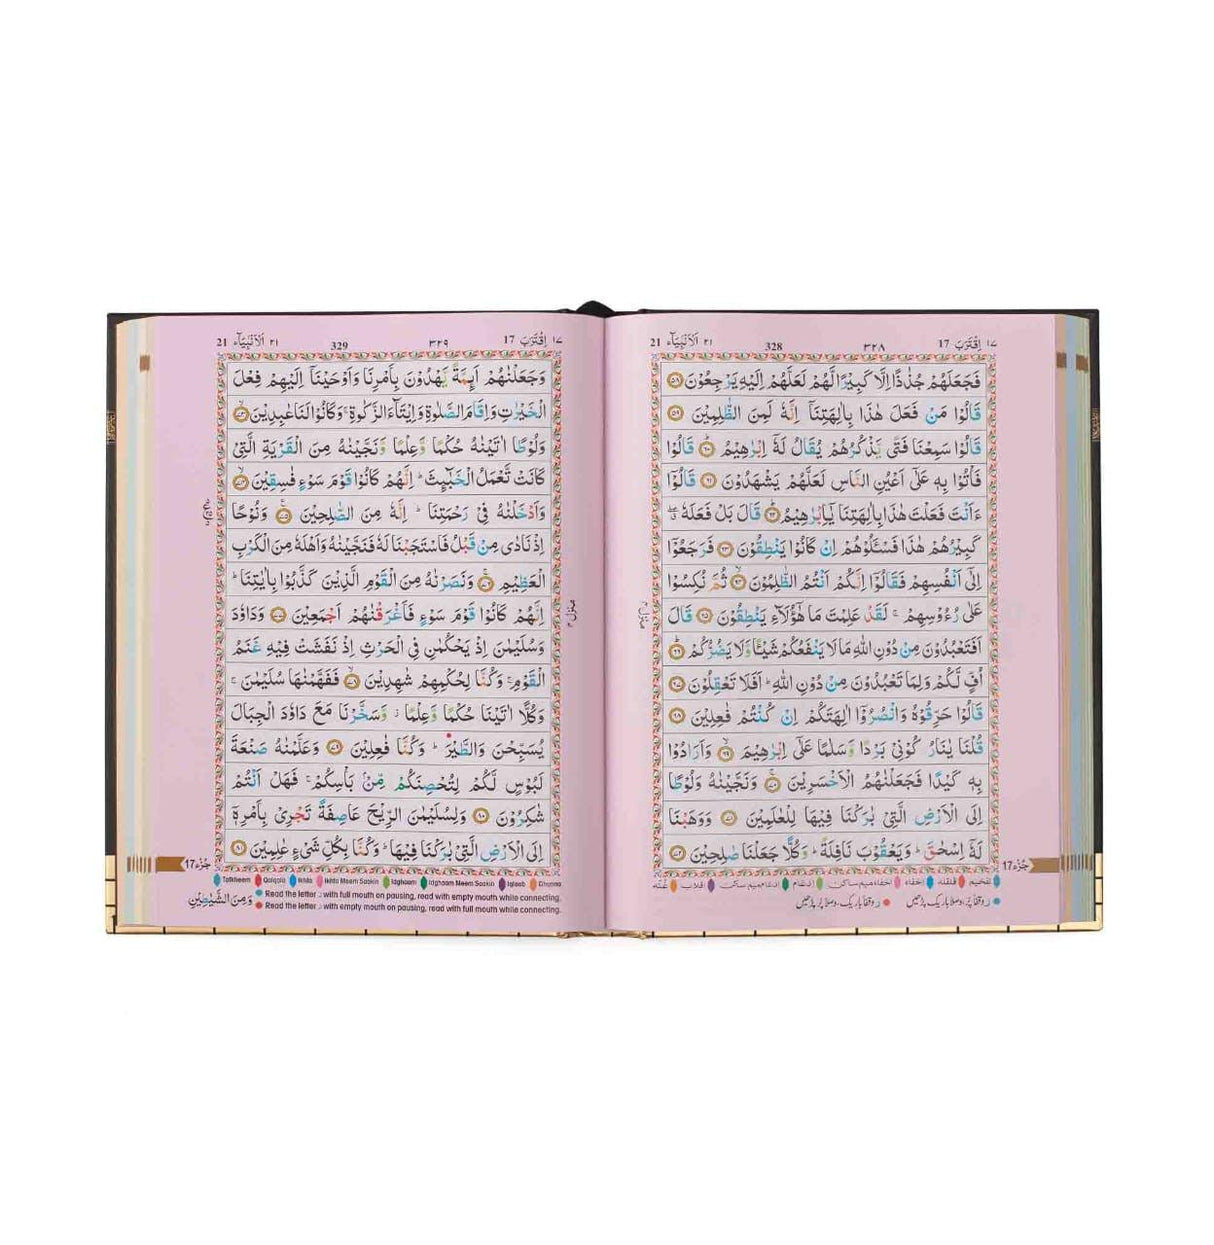 ١٧ اِقْتَرَبَ 17
٣٢٨
328
٢١ اَلْاَنْبِيَآء 21
فَجَعَلَهُمْ جُذٰذًا اِلَّا كَبِيْرًا لَّهُمْ لَعَلَّهُمْ اِلَيْهِ يَرْجِعُوْنَ ﴿٥٨﴾
قَالُوْا مَنْ فَعَلَ هٰذَا بِاٰلِهَتِنَاۤ اِنَّهٗ لَمِنَ الظّٰلِمِيْنَ ﴿٥٩﴾
قَالُوْا سَمِعْنَا فَتًى يَّذْكُرُهُمْ يُقَالُ لَهٗۤ اِبْرٰهِيْمُ ﴿٦٠﴾ قَالُوْا
فَاْتُوْا بِهٖ عَلٰٓى اَعْيُنِ النَّاسِ لَعَلَّهُمْ يَشْهَدُوْنَ ﴿٦١﴾ قَالُوْٓا
ءَاَنْتَ فَعَلْتَ هٰذَا بِاٰلِهَتِنَا يٰٓاِبْرٰهِيْمُ ﴿٦٢﴾ قَالَ بَلْ فَعَلَهٗ
كَبِيْرُهُمْ هٰذَا فَسْـَٔلُوْهُمْ اِنْ كَانُوْا يَنْطِقُوْنَ ﴿٦٣﴾ فَرَجَعُوْٓا
اِلٰٓى اَنْفُسِهِمْ فَقَالُوْٓا اِنَّكُمْ اَنْتُمُ الظّٰلِمُوْنَ ﴿٦٤﴾ ثُمَّ نُكِسُوْا
عَلٰى رُءُوْسِهِمْ ۚ لَقَدْ عَلِمْتَ مَا هٰٓؤُلَآءِ يَنْطِقُوْنَ ﴿٦٥﴾ قَالَ
اَفَتَعْبُدُوْنَ مِنْ دُوْنِ اللّٰهِ مَا لَا يَنْفَعُكُمْ شَيْـًٔا وَّلَا يَضُرُّكُمْ ﴿٦٦﴾
اُفٍّ لَّكُمْ وَلِمَا تَعْبُدُوْنَ مِنْ دُوْنِ اللّٰهِ ؕ اَفَلَا تَعْقِلُوْنَ ﴿٦٧﴾
قَالُوْا حَرِّقُوْهُ وَانْصُرُوْٓا اٰلِهَتَكُمْ اِنْ كُنْتُمْ فٰعِلِيْنَ ﴿٦٨﴾
قُلْنَا يٰنَارُ كُوْنِيْ بَرْدًا وَّسَلٰمًا عَلٰٓى اِبْرٰهِيْمَ ﴿٦٩﴾ وَاَرَادُوْا
بِهٖ كَيْدًا فَجَعَلْنٰهُمُ الْاَخْسَرِيْنَ ﴿٧٠﴾ وَنَجَّيْنٰهُ وَلُوْطًا
اِلَى الْاَرْضِ الَّتِيْ بٰرَكْنَا فِيْهَا لِلْعٰلَمِيْنَ ﴿٧١﴾ وَوَهَبْنَا
لَهٗۤ اِسْحٰقَ ؕ وَيَعْقُوْبَ نَافِلَةً ؕ وَكُلًّا جَعَلْنَا صٰلِحِيْنَ ﴿٧٢﴾
جُزْء 17
منزل ٤
تفخیم قلقلہ اخفاء اخفاء میم ساکن ادغام ادغام میم ساکن اقلاب غنّہ
ر وقفاً پُر، وصلاً باریک پڑھیں ر وقفاً باریک، وصلاً پُر پڑھیں
١٧ اِقْتَرَبَ 17
٣٢٩
329
٢١ اَلْاَنْبِيَآء 21
وَجَعَلْنٰهُمْ اَئِمَّةً يَّهْدُوْنَ بِاَمْرِنَا وَاَوْحَيْنَاۤ اِلَيْهِمْ فِعْلَ
الْخَيْرٰتِ وَاِقَامَ الصَّلٰوةِ وَاِيْتَآءَ الزَّكٰوةِ ۚ وَكَانُوْا لَنَا عٰبِدِيْنَ ﴿٧٣﴾
وَلُوْطًا اٰتَيْنٰهُ حُكْمًا وَّعِلْمًا وَّنَجَّيْنٰهُ مِنَ الْقَرْيَةِ الَّتِيْ
كَانَتْ تَّعْمَلُ الْخَبٰٓئِثَ ؕ اِنَّهُمْ كَانُوْا قَوْمَ سَوْءٍ فٰسِقِيْنَ ﴿٧٤﴾
وَاَدْخَلْنٰهُ فِيْ رَحْمَتِنَا ؕ اِنَّهٗ مِنَ الصّٰلِحِيْنَ ﴿٧٥﴾ وَنُوْحًا
اِذْ نَادٰى مِنْ قَبْلُ فَاسْتَجَبْنَا لَهٗ فَنَجَّيْنٰهُ وَاَهْلَهٗ مِنَ الْكَرْبِ
الْعَظِيْمِ ﴿٧٦﴾ وَنَصَرْنٰهُ مِنَ الْقَوْمِ الَّذِيْنَ كَذَّبُوْا بِاٰيٰتِنَا ؕ
اِنَّهُمْ كَانُوْا قَوْمَ سَوْءٍ فَاَغْرَقْنٰهُمْ اَجْمَعِيْنَ ﴿٧٧﴾ وَدَاوٗدَ
وَسُلَيْمٰنَ اِذْ يَحْكُمٰنِ فِي الْحَرْثِ اِذْ نَفَشَتْ فِيْهِ غَنَمُ
الْقَوْمِ ۚ وَكُنَّا لِحُكْمِهِمْ شٰهِدِيْنَ ﴿٧٨﴾ فَفَهَّمْنٰهَا سُلَيْمٰنَ ۚ
وَكُلًّا اٰتَيْنَا حُكْمًا وَّعِلْمًا ز وَّسَخَّرْنَا مَعَ دَاوٗدَ الْجِبَالَ
يُسَبِّحْنَ وَالطَّيْرَ ؕ وَكُنَّا فٰعِلِيْنَ ﴿٧٩﴾ وَعَلَّمْنٰهُ صَنْعَةَ
لَبُوْسٍ لَّكُمْ لِتُحْصِنَكُمْ مِّنْۢ بَاْسِكُمْ ۚ فَهَلْ اَنْتُمْ
شٰكِرُوْنَ ﴿٨٠﴾ وَلِسُلَيْمٰنَ الرِّيْحَ عَاصِفَةً تَجْرِيْ بِاَمْرِهٖۤ
اِلَى الْاَرْضِ الَّتِيْ بٰرَكْنَا فِيْهَا ؕ وَكُنَّا بِكُلِّ شَيْءٍ عٰلِمِيْنَ ﴿٨١﴾
منزل ٤
جُزْء 17
Tafkheem Qalqala Ikhfa Ikhfa Meem Saakin Idghaam Idghaam Meem Saakin Iqlaab Ghunna
Read the letter ر with full mouth on pausing, read with empty mouth while connecting.
Read the letter ر with empty mouth on pausing, read with full mouth while connecting.
وَمِنَ الشَّيٰطِيْنِ